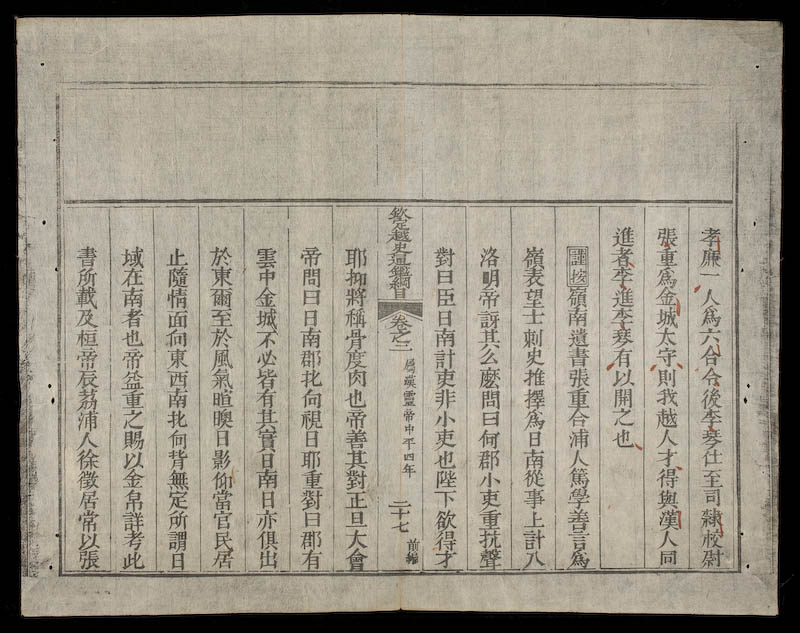 孝廉一人爲六合令後李琴仕至司隸校尉
張重爲金城太守則我越人才得與漢人同
進者李進李琴有以開之也
謹按嶺南遺書張重合浦人篤學善言爲
嶺表望士刺史推擇爲日南從事上計入
洛明帝訝其么麽問曰何郡小吏重抗聲
對曰臣日南計吏非小吏也陛下欲得才
欽定越史通鑑綱目 卷之二 屬漢靈帝中平四年 二十七 前編
耶抑將稱骨度肉也帝善其對正旦大會
帝問曰日南郡北向視日耶重對曰郡有
雲中金城不必皆有其實日南日亦俱出
於東爾至於風氣暄暖日影仰當官民居
止隨情面向東西南北向背無定所謂日
域在南者也帝益重之賜以金帛詳考此
書所載及桓帝辰荔浦人徐徵居常以張